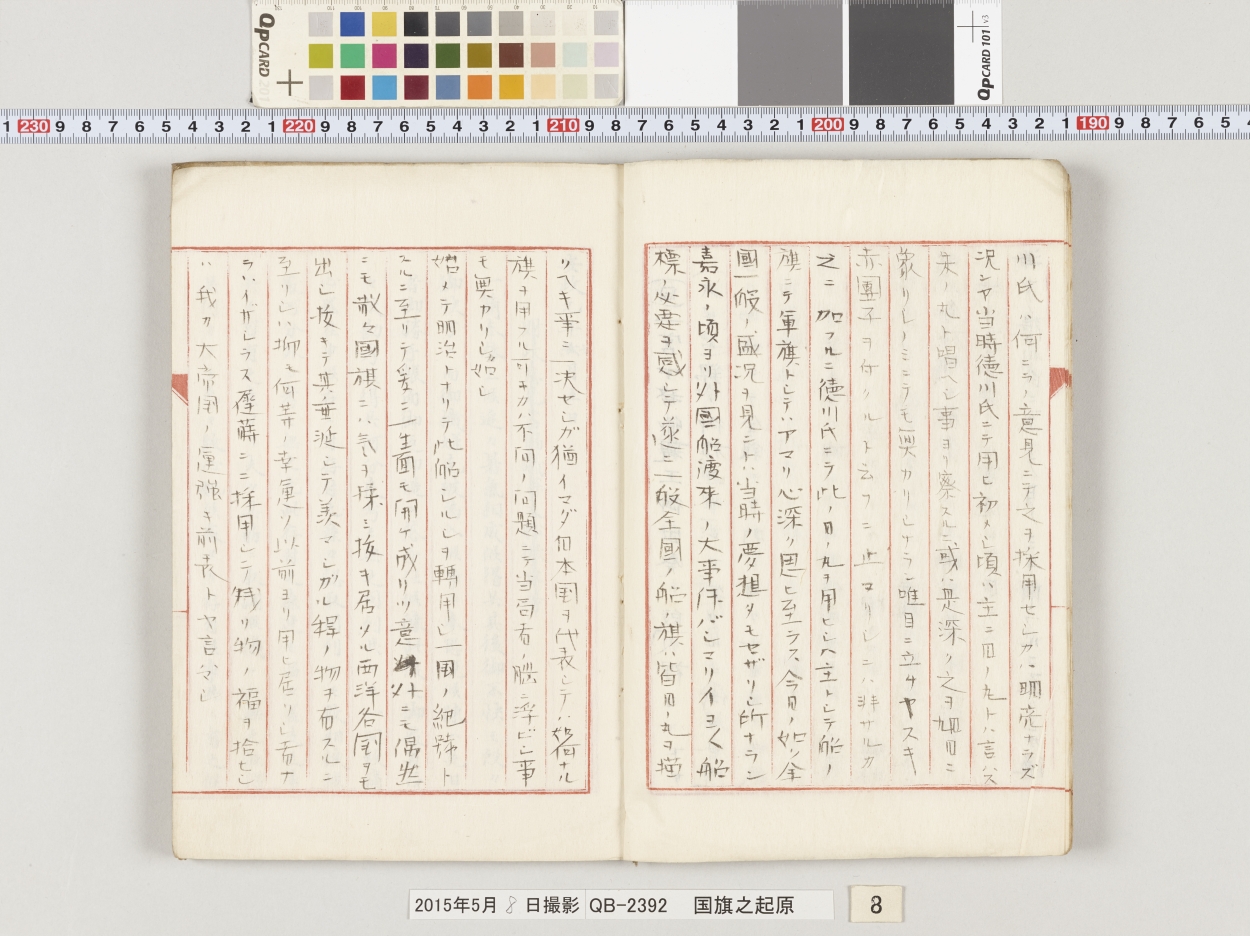 川氏ハ何ニラノ意見ニテ之ヲ採用セシカハ明亮ナラズ
况ンヤ当時徳川氏ニテ用ヒ初メシ頃ハ主ニ日ノ丸トハ言ハズ
朱ノ丸ト唱ヘシ事ヨリ察スルニ或ハ意深ク之ヲ如日ニ
象リシノミニラモ奥カリシナラン唯目ニ立チヤスキ
赤團子ヲ付クルト云フニ止マリシニハ非サルカ
之ニ加フルニ徳川氏ニラ此ノ日ノ丸ヲ用ヒシハ主トシテ船ノ
旗ニテ軍旗トシテハアマリ心深ク思ヒ至ラス今日ノ如ク全
國一般ノ盛况ヲ見ントハ当時ノ夢想タモセザリシ所ナラン
嘉永ノ頃ヨリ外國船渡來ノ大事件バシマリイヨ〱船
標ノ必要ヲ感シテ遂ニ一般全國ノ船ノ旗ハ皆日ノ丸ヲ描
リヘキ事ニ一决セシガ猶イマダ日本国ヲ代表シテハ如何ナル
旗ヲ用フル可キカハ不问ノ问題ニテ当局者ノ脳ニ浮ビシ事
モ奥カリシ如シ
始メテ明治トナリテ此船シルシヲ轉用シ一国ノ紀號ト
スルニ至リテ爰ニ一生面モ開ケ成リツ意外ニモ偶然
ニモ散々國旗ニハ気ヲ揉ミ抜キ居ツル西洋各国タモ
出シ抜キテ其ノ垂涎シテ羨マシガル程ノ物ヲ有スルニ
至リシハ抑モ何等ノ幸運ソ以前ヨリ用ヒ居リシ者ナ
ラハイザシラス薩蒔ニニ採用シテ残リ物ノ福ヲ拾セシ
ハ我カ大帝国ノ運強キ前表トヤ言ハン
2015年5月8日撮影 QB-2392 国旗之起原
8
QPCARD 101 v3
QPCARD 201